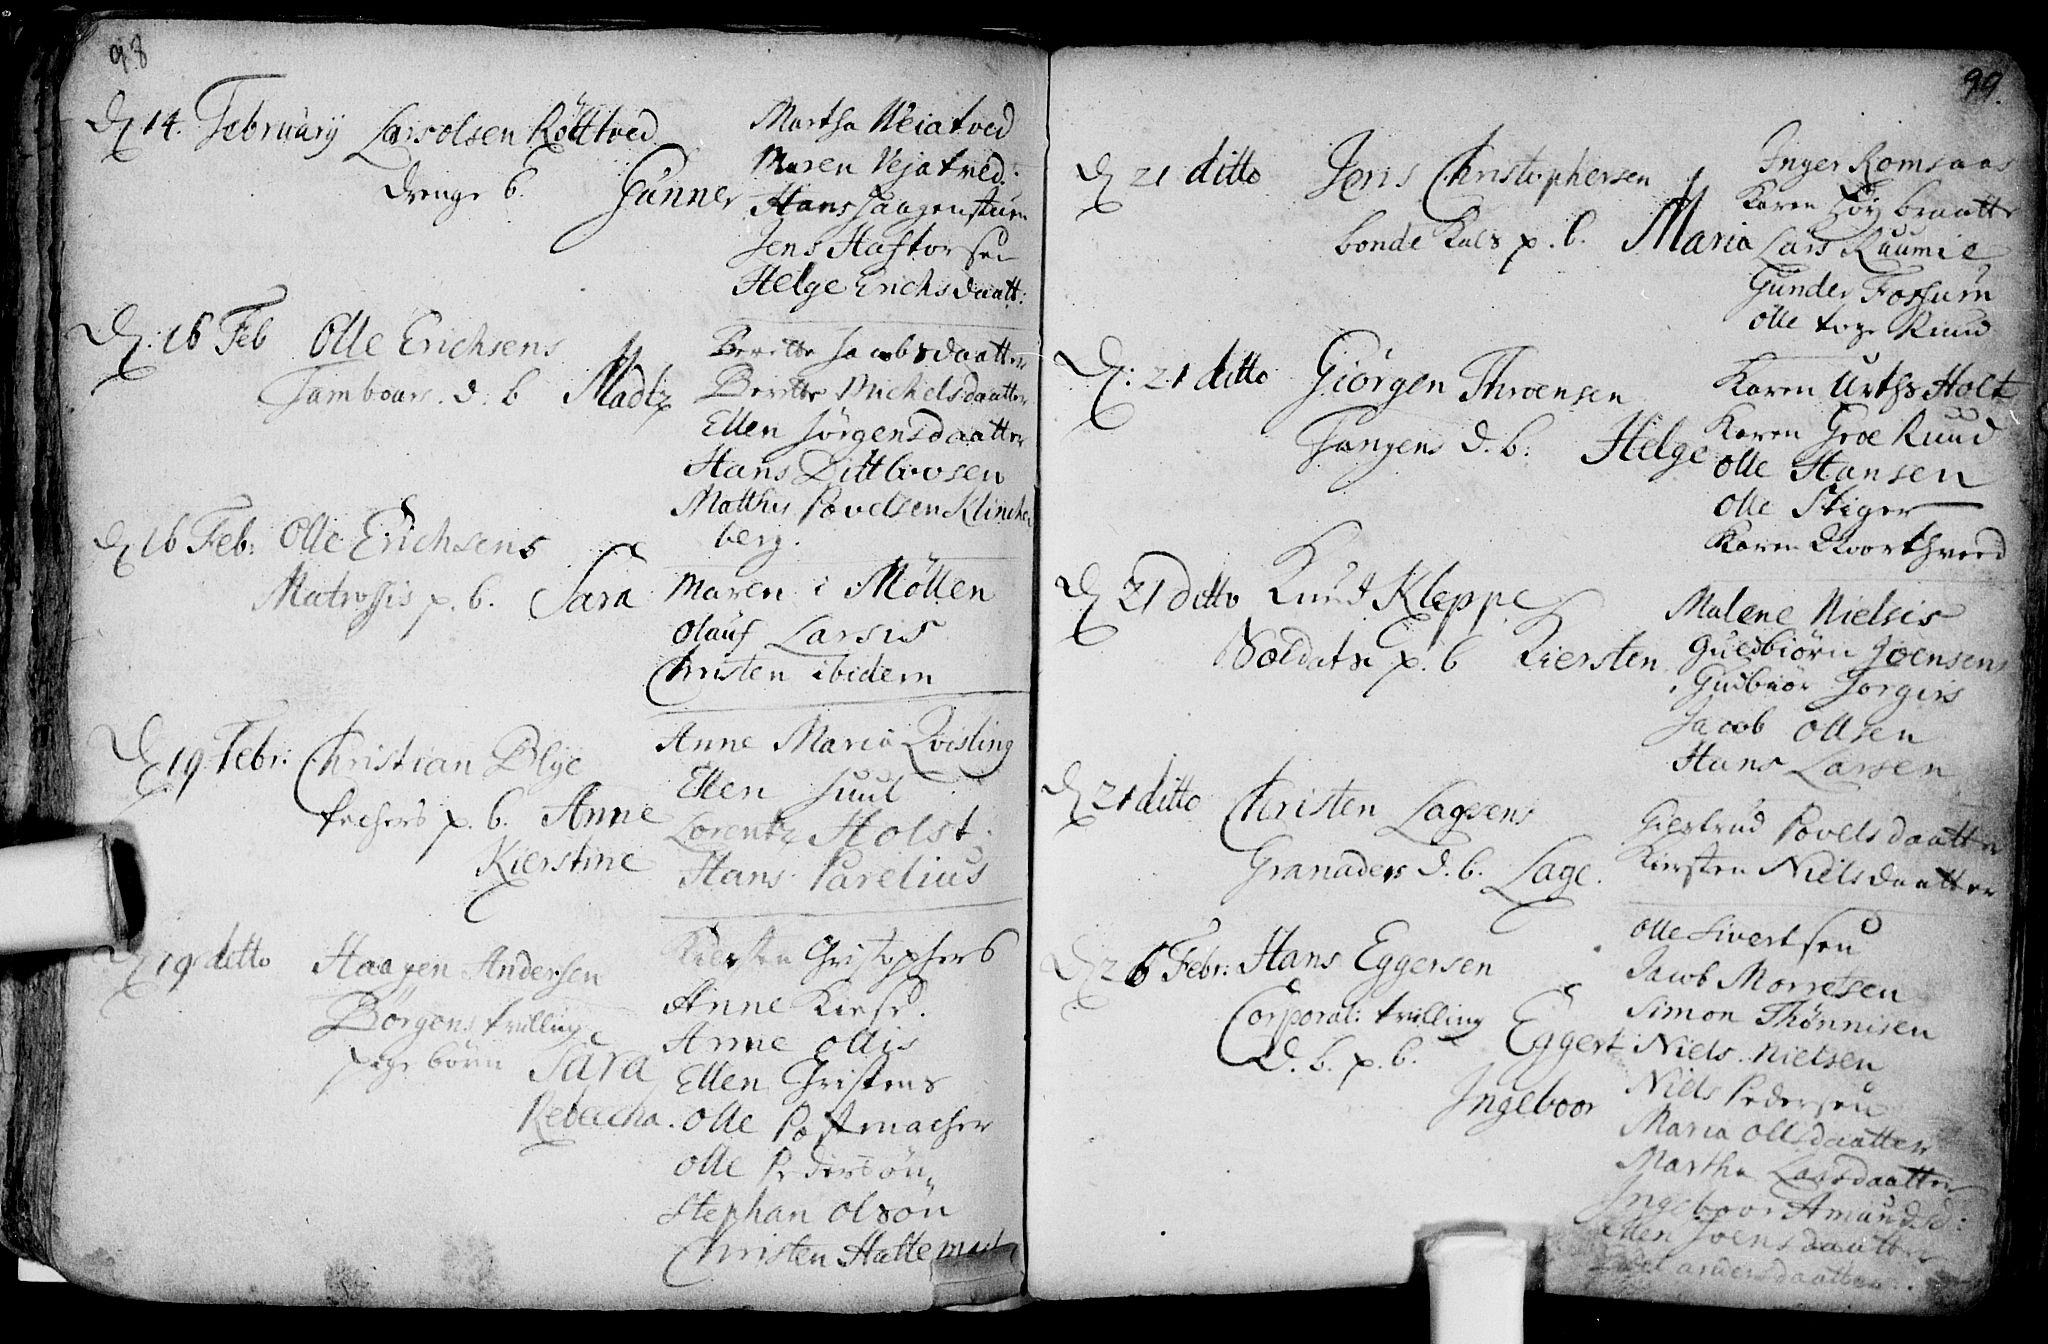 98
D 14. February Lars olsen Röttved
drenge b. Gunner
Martha Weiatved
Maren Vejatved.
Hans Haagenstuen
Jens Haftorsen
Helge Erichsdaatt:
D. 16 Feb Olle Erichsens
Tambours. d. b Madtz
Berette Jacobsdaatter
Berette Michelsdaatter
Ellen Jörgensdaatter
Hans Dittlovsen
Mathis Povelsen Klincken
berg.
D 16 Feb: Olle Erichsens
Matrossis p. b. Sara
Maren i Mötten
Olauf Larsis
Christen ibidem
D 19 Febr: Christian Blye
techers p. b. Anne
Kierstine
Anne Maria Qvisling
Ellen Juul
Lorentz Holst.
Hans Parelius
D 19 ditto Haagen Andersen
Börgens trilling
pige börn Sara
Rebecha.
Kiersten Christophers
Anne Kiese.
Anne Ollis
Ellen Christens
Olle Postmacher
Olle Pedersön
Stephan Olsön
Christen Hattemach
99.
D 21 ditto Joris Christophersen
bonde Kals p. b. Maria
Inger Romsaas
Karen Höy braatte
Lars Ruumie
Gunder Fossum
Olle toge Ruud
D: 21 ditto Giörgen Throensen
Tangens d. b: Helge
Karen Urths Holt
Karen Groe Ruud
Olle Hansen
Olle Stiger
Karen Qvorthved
D 21 ditto Knud Kleppe
Soldats p. b Kiersten
Malene Nielsis
Guldbiörn Joensens
Gudbiör Jorgins
Jacob Ollsen
Hans Larsen
D 21 ditto Christen Lagesens
Granaders d. b. Lage.
Giertrud Povelsdaatter
Kirsten Nielsdaatter
D 26 Febr: Hans Eggersen
Corporal: trilling
d. b. p. b. Eggert
Ingeboor
Olle Sivertsen
Jacob Morretsen
Simon Thönnisen
Niels Nielsen
Niels Pedersen
Maria Ollsdaatter
Martha Larsdaatter
Ingeboor Amundsd:
Ellen Joensdaatter
andersdaatter.